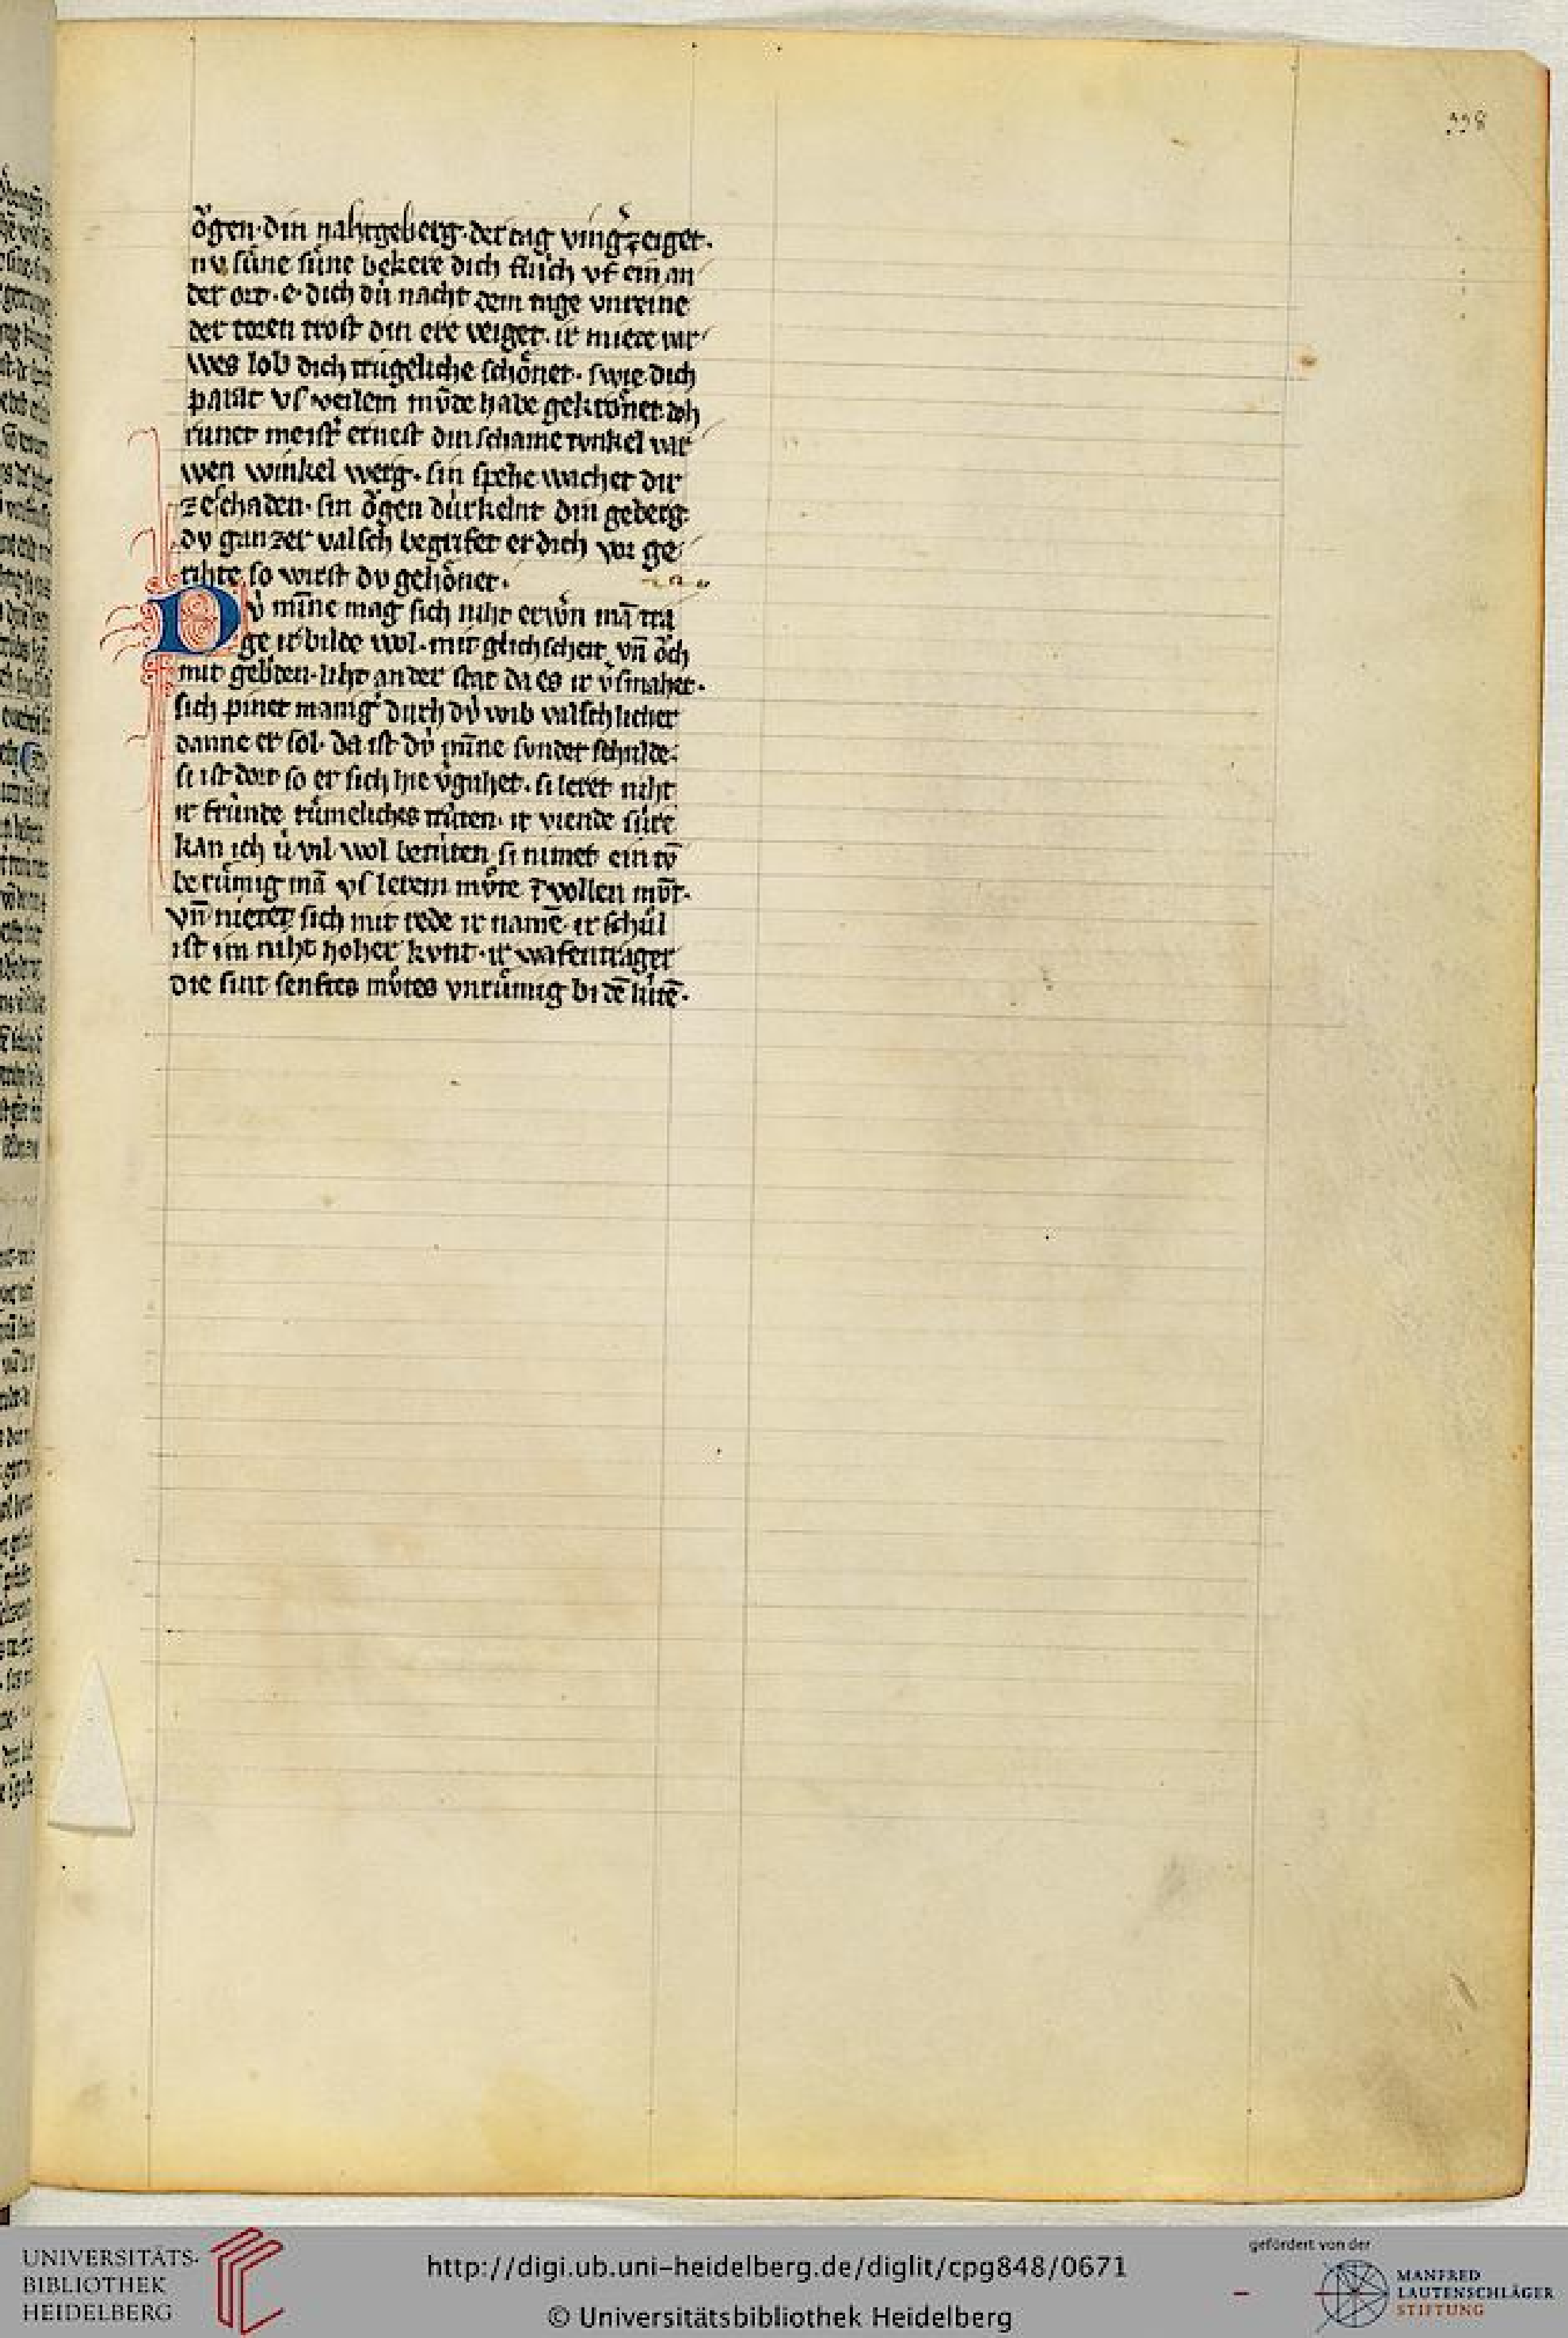 338
ögen · din nahtgeberg · der tag
nv süne süne bekere dich fluch vf ein an
der ort · e · dich dú nacht dem tage vnreine
der toren trost din ere veiget · ir miete
wes lob dich trúgeliche schönet · swie dich
parat vs veilem mvͦde habe gekrönet doh
runet meist ernest din schame tvnkel var
wen winkel werg · sin spehe wachet dir
ze schaden · sin ögen dúrkelnt din geberg ·
dv ganzer valsch begrifet er dich vor ge
rihte so wirst dv gehönet ·
Dv́ mīne mag sich niht erwͦn mā tra
ge ir bilde wol · mit glichscheit vn̄ öch
mit · liht an der stat da es ir v̓smahet ·
sich pinet manig̓ durh dv́ wib valschlicher
danne er sol · da ist dv́ mīne svnder schulde ·
si ist dort so er sich hie v̓gahet · si leret niht
ir frúnde rümeliches trúten · ir viende
kan ich ú vil wol betúten · si nimet ein
berümig mā vs mvͦte
vn̄ nietet sich mit rede ir namē · ir schúl
ist im niht hoher kvnt · ir wafentrager
die sint senftes mvͦtes vnrümig bi dē lútē ·
UNIVERSITÄTS-
BIBLIOTHEK
HEIDELBERG
http://digi.ub.uni-heidelberg.de/diglit/cpg848/0671
© Universitätsbibliothek Heidelberg
gefördert von der
MANFRED
LAUTENSCHLÄGER
STIFTUNG